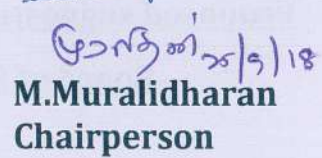 முரளிதரன் 25/9/18
M.Muralidharan
Chairperson